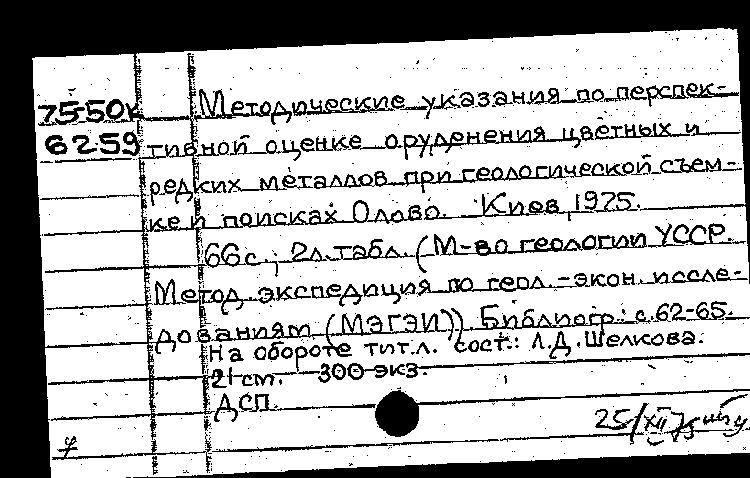 75-50к Методические указания по перспек-
6259 тивной оценке оруденения цветных и
редких металлов при геологической съем-
ке и поисках Олово. Киев, 1975.
66с.; 2л.табл. (М-во геологии УССР.
Метод. экспедиция по геол.-экон. иссле-
дованиям (МЭГЭИ)). Библиогр.: с.62-65.
На обороте тит.л. сост.: Л.Д.Шелкова.
21 cm. 300 экз.
ДСП.
25/XII 75